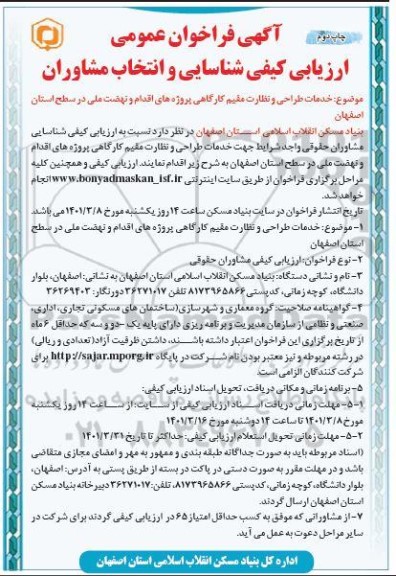 چاپ دوم
آگهی فراخوان عمومی
ارزیابی کیفی شناسایی و انتخاب مشاوران
موضوع: خدمات طراحی و نظارت مقیم کارگاهی پروژه های اقدام و نهضت ملی در سطح استان
اصفهان
بنیاد مسکن انقلاب اسلامی استان اصفهان در نظر دارد نسبت به ارزیابی کیفی شناسایی
مشاوران حقوقی واجد شرایط جهت خدمات طراحی و نظارت مقیم کارگاهی پروژه های اقدام
و نهضت ملی در سطح استان اصفهان به شرح زیر اقدام نمایند. ارزیابی کیفی و همچنین کلیه
مراحل برگزاری فراخوان از طریق سایت اینترنتی www.bonyadmaskan_isf.ir انجام
خواهد شد.
تاریخ انتشار فراخوان در سایت بنیاد مسکن ساعت ۱۴ روز یکشنبه مورخ ۱۴۰۱/۳/۸ می باشد.
۱- موضوع: خدمات طراحی و نظارت مقیم کارگاهی پروژه های اقدام و نهضت ملی در سطح
استان اصفهان
۲- نوع فراخوان: ارزیابی کیفی مشاوران حقوقی
۳- نام و نشانی دستگاه: بنیاد مسکن انقلاب اسلامی استان اصفهان به نشانی: اصفهان، بلوار
دانشگاه، کوچه زمانی، کدپستی ۸۱۷۳۹۶۵۸۶۶ تلفن ۳۶۲۷۱۰۱۷ دورنگار: ۳۶۲۶۹۴۰۳
۴- گواهینامه صلاحیت: گروه معماری و شهرسازی (ساختمان های مسکونی تجاری، اداری،
صنعتی و نظامی از سازمان مدیریت و برنامه ریزی دارای پایه یک -دو و سه که حداقل ۶ ماه
از تاریخ برگزاری این فراخوان اعتبار داشته باشند، داشتن ظرفیت آزاد (تعدادی و ریالی)
در رشته مربوطه و نیز معتبر بودن نام شرکت در پایگاه http://sajar.mporg.ir برای
شرکت کنندگان الزامی است.
۵- برنامه زمانی و مکانی دریافت، تحویل اسناد ارزیابی کیفی:
۵-۱- مهلت زمانی دریافت اسناد ارزیابی کیفی از سایت: از ساعت ۱۴ روز یکشنبه
مورخ ۱۴۰۱/۳/۸ تا ساعت ۱۴ دوشنبه مورخ ۱۴۰۱/۳/۱۶
۵-۲- مهلت زمانی تحویل استعلام ارزیابی کیفی: حداکثر تا تاریخ ۱۴۰۱/۳/۳۱
(اسناد مربوطه باید به صورت جداگانه طبقه بندی و ممهور به مهر و امضای مجازی متقاضی
باشد و در مهلت مقرر به صورت دستی در پاکت در بسته از طریق پستی به آدرس: اصفهان،
بلوار دانشگاه، کوچه زمانی، کدپستی ۸۱۷۳۹۶۵۸۶۶، تلفن: ۳۶۲۷۱۰۱۷ دبیرخانه بنیاد مسکن
استان اصفهان ارسال گردند.
۷- از مشاورانی که موفق به کسب حداقل امتیاز ۶۵ در ارزیابی کیفی گردند برای شرکت در
سایر مراحل دعوت به عمل می آید.
اداره کل بنیاد مسکن انقلاب اسلامی استان اصفهان